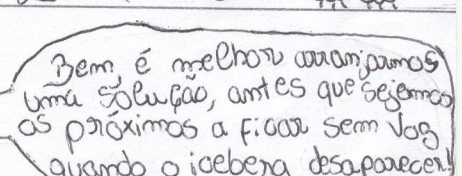 Bem, é melhor arranjarmos
uma solução, antes que sejemos
os próximos a ficar sem voz
quando o iceberg desaparecer!